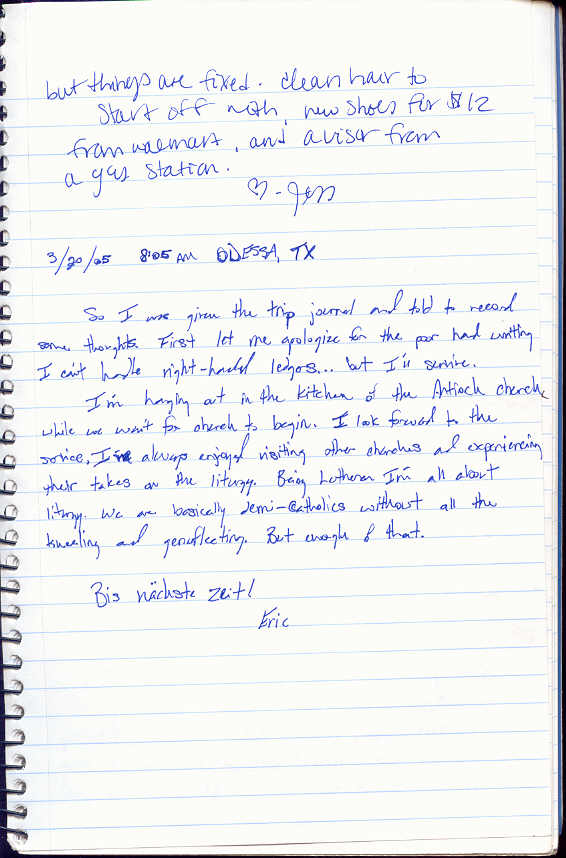 but things are fixed. clean hair to
start off with, new shoes for $12
from walmart, and a visor from
a gas station.
♡ - Jess
3/20/05 8:05 AM ODESSA, TX
So I was given the trip journal and told to record
some thoughts. First let me apologize for the poor hand writting
I can't handle right-handed ledgers... but I'll survive.
I'm hanging out in the kitchen of the Antioch church
while we wait for church to begin. I look forward to the
service, I've always enjoyed visiting other churches and experiencing
their takes on the liturgy. Being Lutheran I'm all about
liturgy. We are basically demi-Catholics without all the
kneeling and genuflecting. But enough of that.
Bis nächste zeit!
Eric